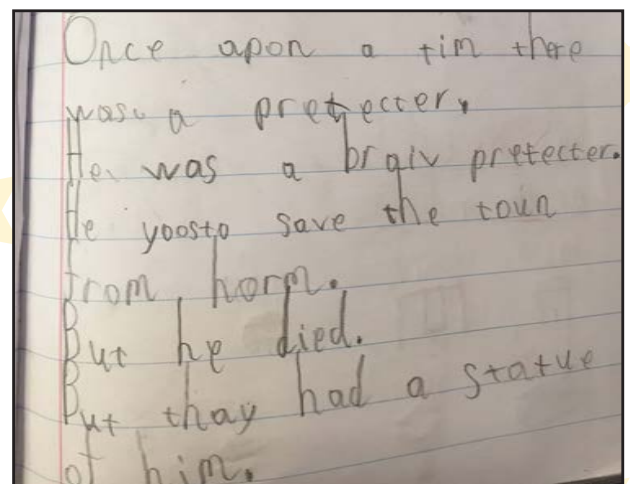 Once apon a tim there
was a pretecter.
He was a braiv pretecter.
He yoosto save the toun
from horm.
But he died.
But thay had a statue
of him.